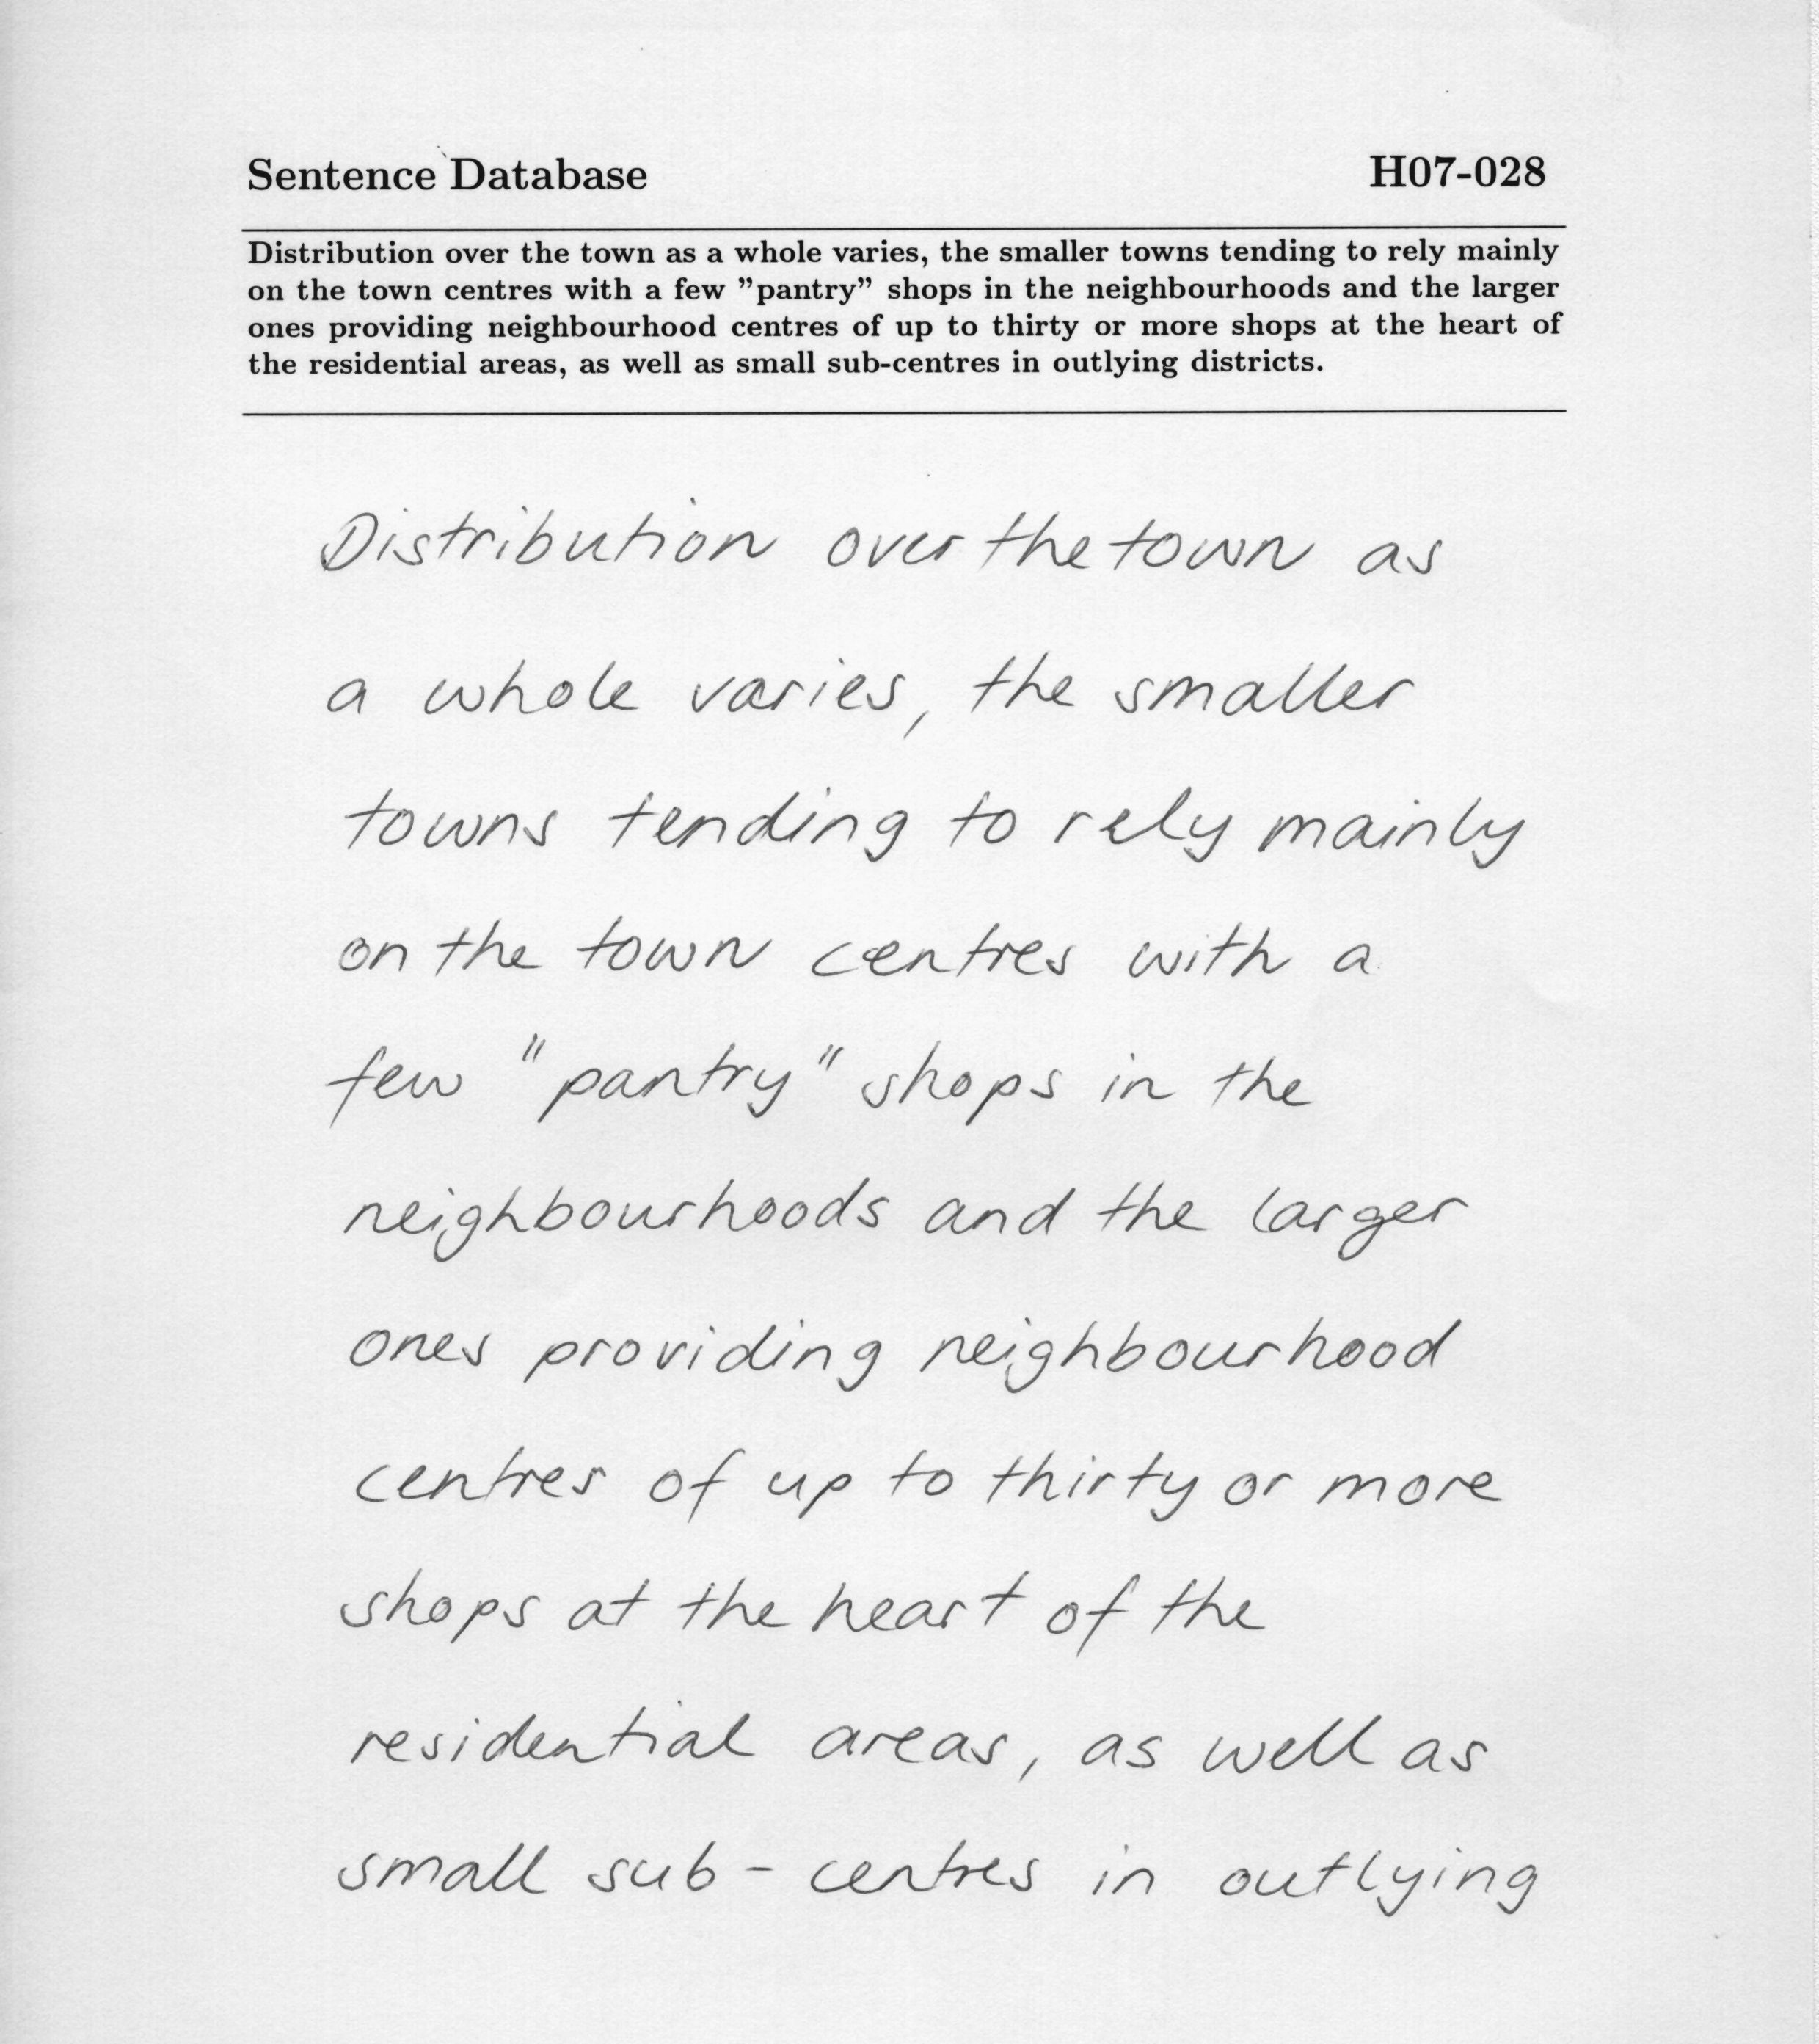 Sentence Database H07-028
Distribution over the town as a whole varies, the smaller towns tending to rely mainly
on the town centres with a few ”pantry” shops in the neighbourhoods and the larger
ones providing neighbourhood centres of up to thirty or more shops at the heart of
the residential areas, as well as small sub-centres in outlying districts.
Distribution over the town as
a whole varies, the smaller
towns tending to rely mainly
on the town centres with a
few "pantry" shops in the
neighbourhoods and the larger
ones providing neighbourhood
centres of up to thirty or more
shops at the heart of the
residential areas, as well as
small sub-centres in outlying